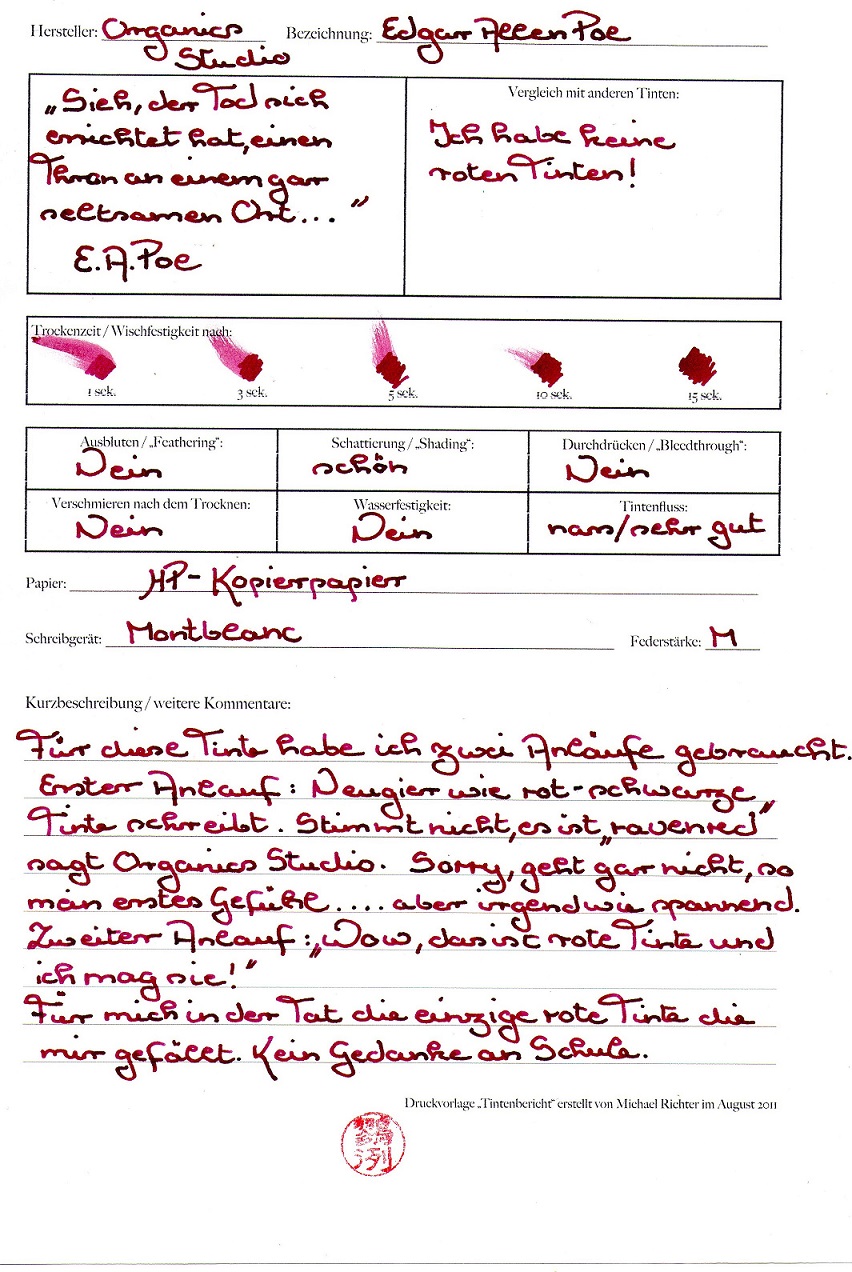 Hersteller: Organics Studio
Bezeichnung: Edgar Allen Poe
„Sieh, der Tod sich
errichtet hat, einen
Thron an einem gar
seltsamen Ort... "
E.A.Poe
Vergleich mit anderen Tinten:
Ich habe keine
roten Tinten!
Trockenzeit / Wischfestigkeit nach:
1 sek. 3 sek. 5 sek. 10 sek. 15 sek.
Ausbluten / „Feathering": Schattierung / „Shading": Durchdrücken / „Bleedthrough":
Nein schön Nein
Verschmieren nach dem Trocknen: Wasserfestigkeit: Tintenfluss:
Nein Nein nass/sehr gut
Papier: HP-Kopierpapier
Schreibgerät: Montblanc Federstärke: M
Kurzbeschreibung / weitere Kommentare:
Für diese Tinte habe ich zwei Anläufe gebraucht.
Erster Anlauf: Neugier wie rot-schwarze
Tinte schreibt. Stimmt nicht, es ist „ravenred"
sagt Organics Studio. Sorry, geht gar nicht, so
mein erstes Gefühl .... aber irgendwie spannend.
Zweiter Anlauf: „Wow, das ist rote Tinte und
ich mag sie!"
Für mich in der Tat die einzige rote Tinte die
mir gefällt. Kein Gedanke an Schule.
Druckvorlage „Tintenbericht" erstellt von Michael Richter im August 2011